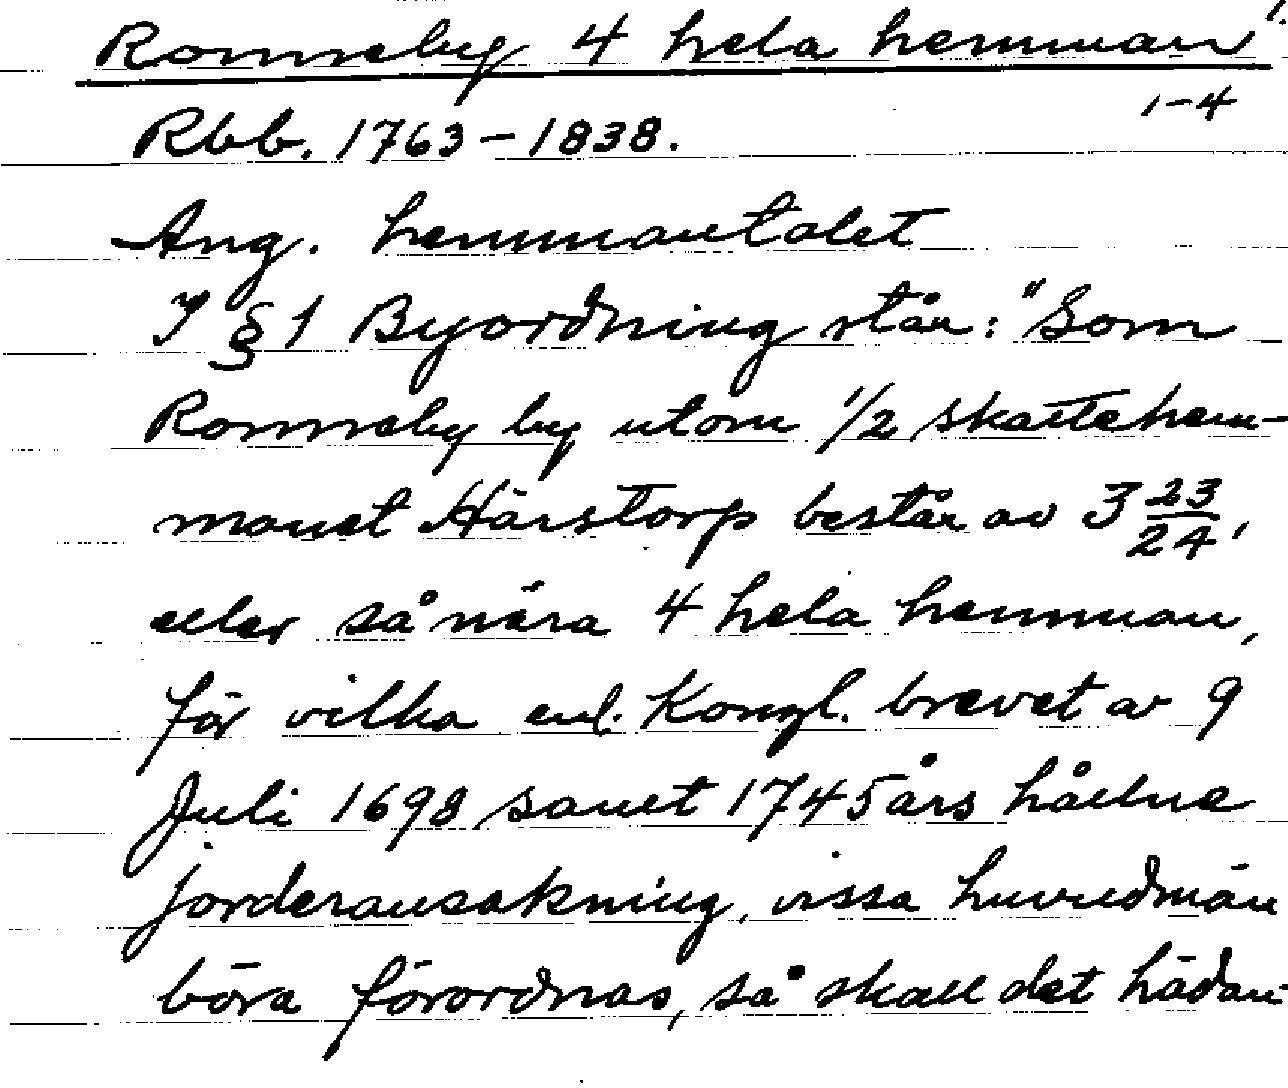 Ronneby 4 hela hemman 1.
1-4
Rbb. 1763-1838.
Ang. hemmantalet
I §1 Byordning står: "Som
Ronneby by utom 1/2 skattehem-
manet Härstorp består av 3 23/24,
eller så nära 4 hela hemman,
för vilka enl. Kongl. brevet av 9
Juli 1698 samt 1745 års hållne
jorderansakning, vissa huvudmän
böra förordnas, så skall det hädan-